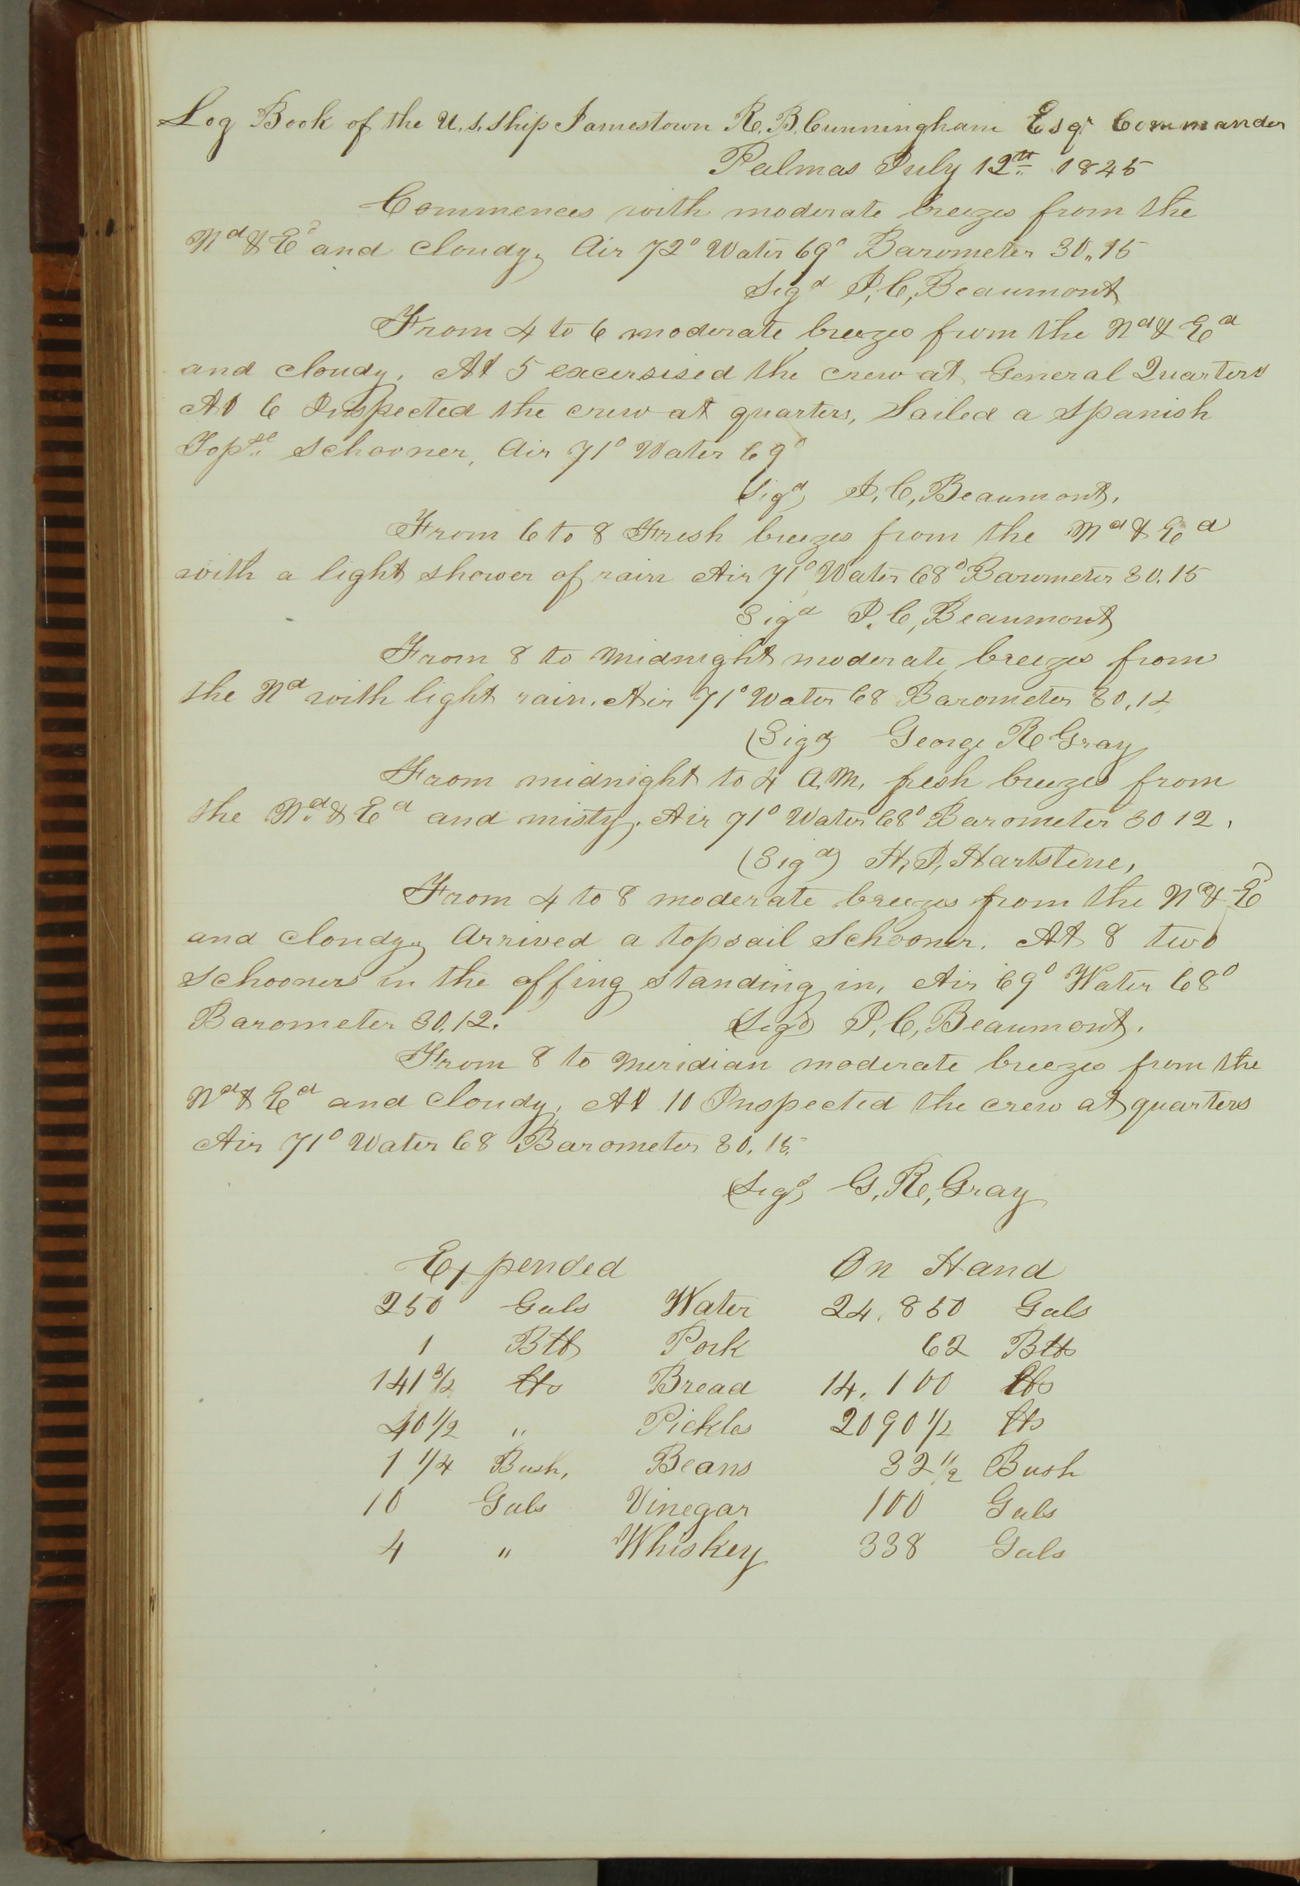 Log Book of the U.S. Ship Jamestown R.B. Cunningham Esqr Commander
Palmas July 12th 1845
Commences with moderate breezes from the
Nd & Ed and Cloudy. Air 72° Water 69° Barometer 30.15
Sigd J.C. Beaumont
From 4 to 6 moderate breezes from the Nd & Ed
and cloudy. At 5 excersised the crew at General Quarters
At 6 Inspected the crew at quarters, Sailed a Spanish
Topsl Schooner, Air 71° Water 69°
Sigd J.C. Beaumont.
From 6 to 8 Fresh breezes from the Nd & Ed
with a light shower of rain Air 71° Water 68° Barometer 30.15
Sigd J.C. Beaumont
From 8 to Midnight moderate breezes from
the Nd with light rain. Air 71° Water 68 Barometer 30.14
(Sigd) George R Gray
From midnight to 4 A.M. fresh breezes from
the Nd & Ed and misty. Air 71° Water 68° Barometer 30 12.
(Sigd) H.J. Hartstene,
From 4 to 8 moderate breezes from the Nd & Ed
and cloudy. Arrived a topsail Schooner. At 8 two
Schooners in the offing standing in, Air 69° Water 68°
Barometer 30.12. (Sigd) J.C. Beaumont.
From 8 to Meridian moderate breezes from the
Nd & Ed and Cloudy. At 10 Inspected the crew at quarters
Air 71° Water 68 Barometer 30.15
(Sigd) G.R. Gray
Expended On Hand
250 Gals Water 24.850 Gals
1 Bbl Pork 62 Bbls
141 3/2 lbs Bread 14.100 lbs
40 1/2 " Pickles 2090 1/2 lbs
1 1/4 Bush. Beans 32 1/2 Bush
10 Gals Vinegar 100 Gals
4 " Whiskey 338 Gals